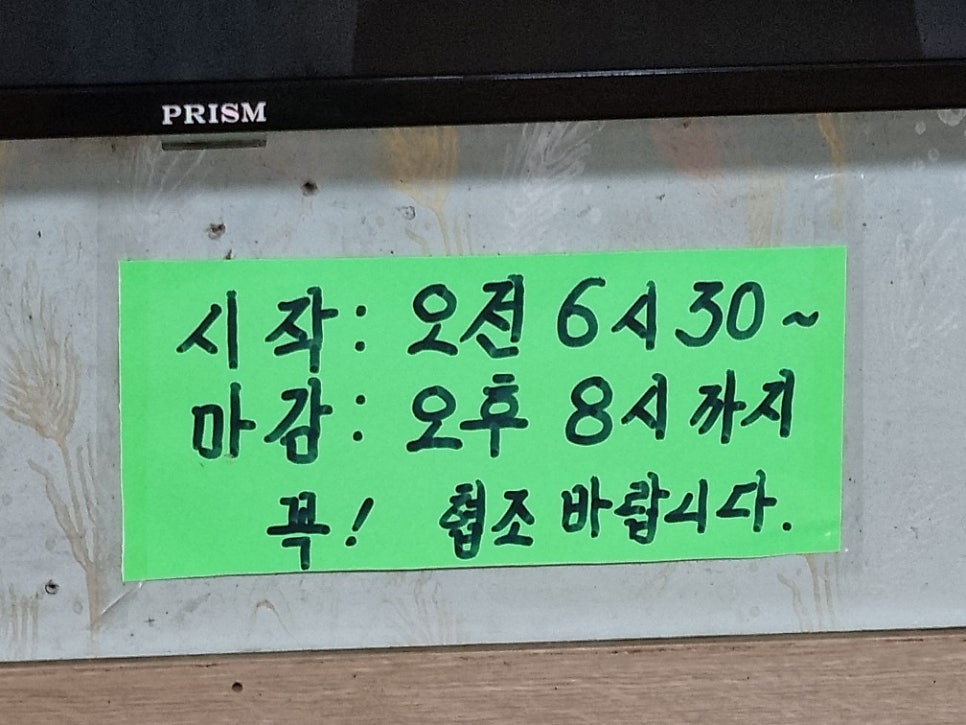 PRISM
시작: 오전 6시 30~
마감: 오후 8시 까지
꼭! 협조 바랍시다.